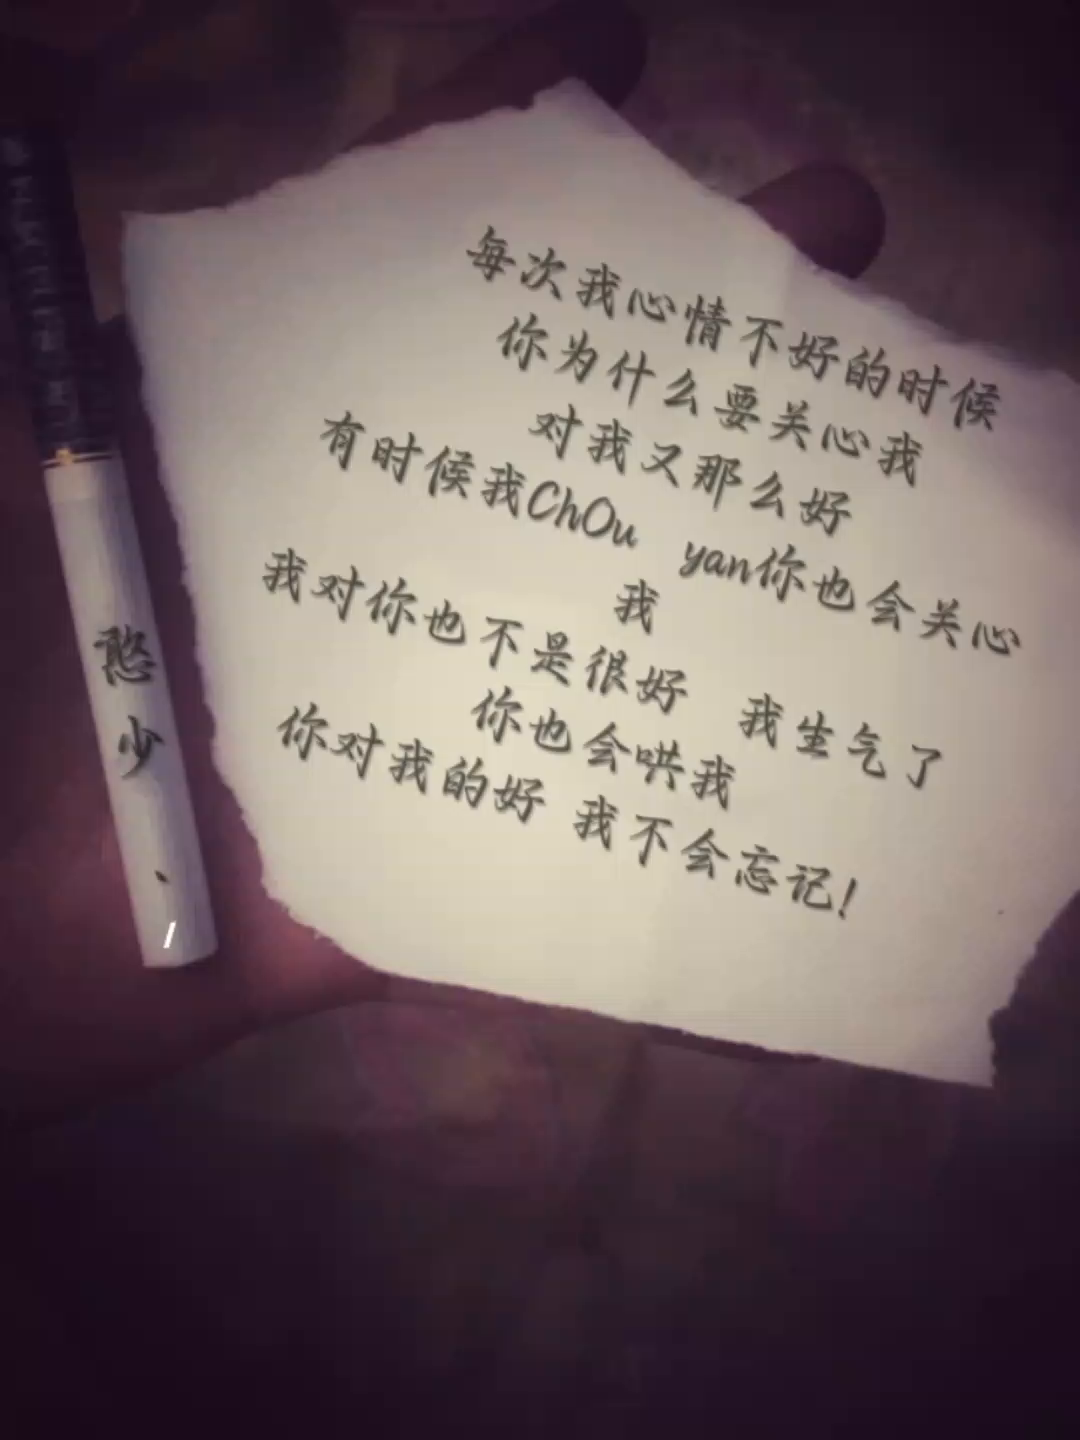 每次我心情不好的时候
你为什么要关心我
对我又那么好
有时候我ChOu yan你也会关心
我
我对你也不是很好 我生气了
你也会哄我
你对我的好 我不会忘记!
憨少、
/